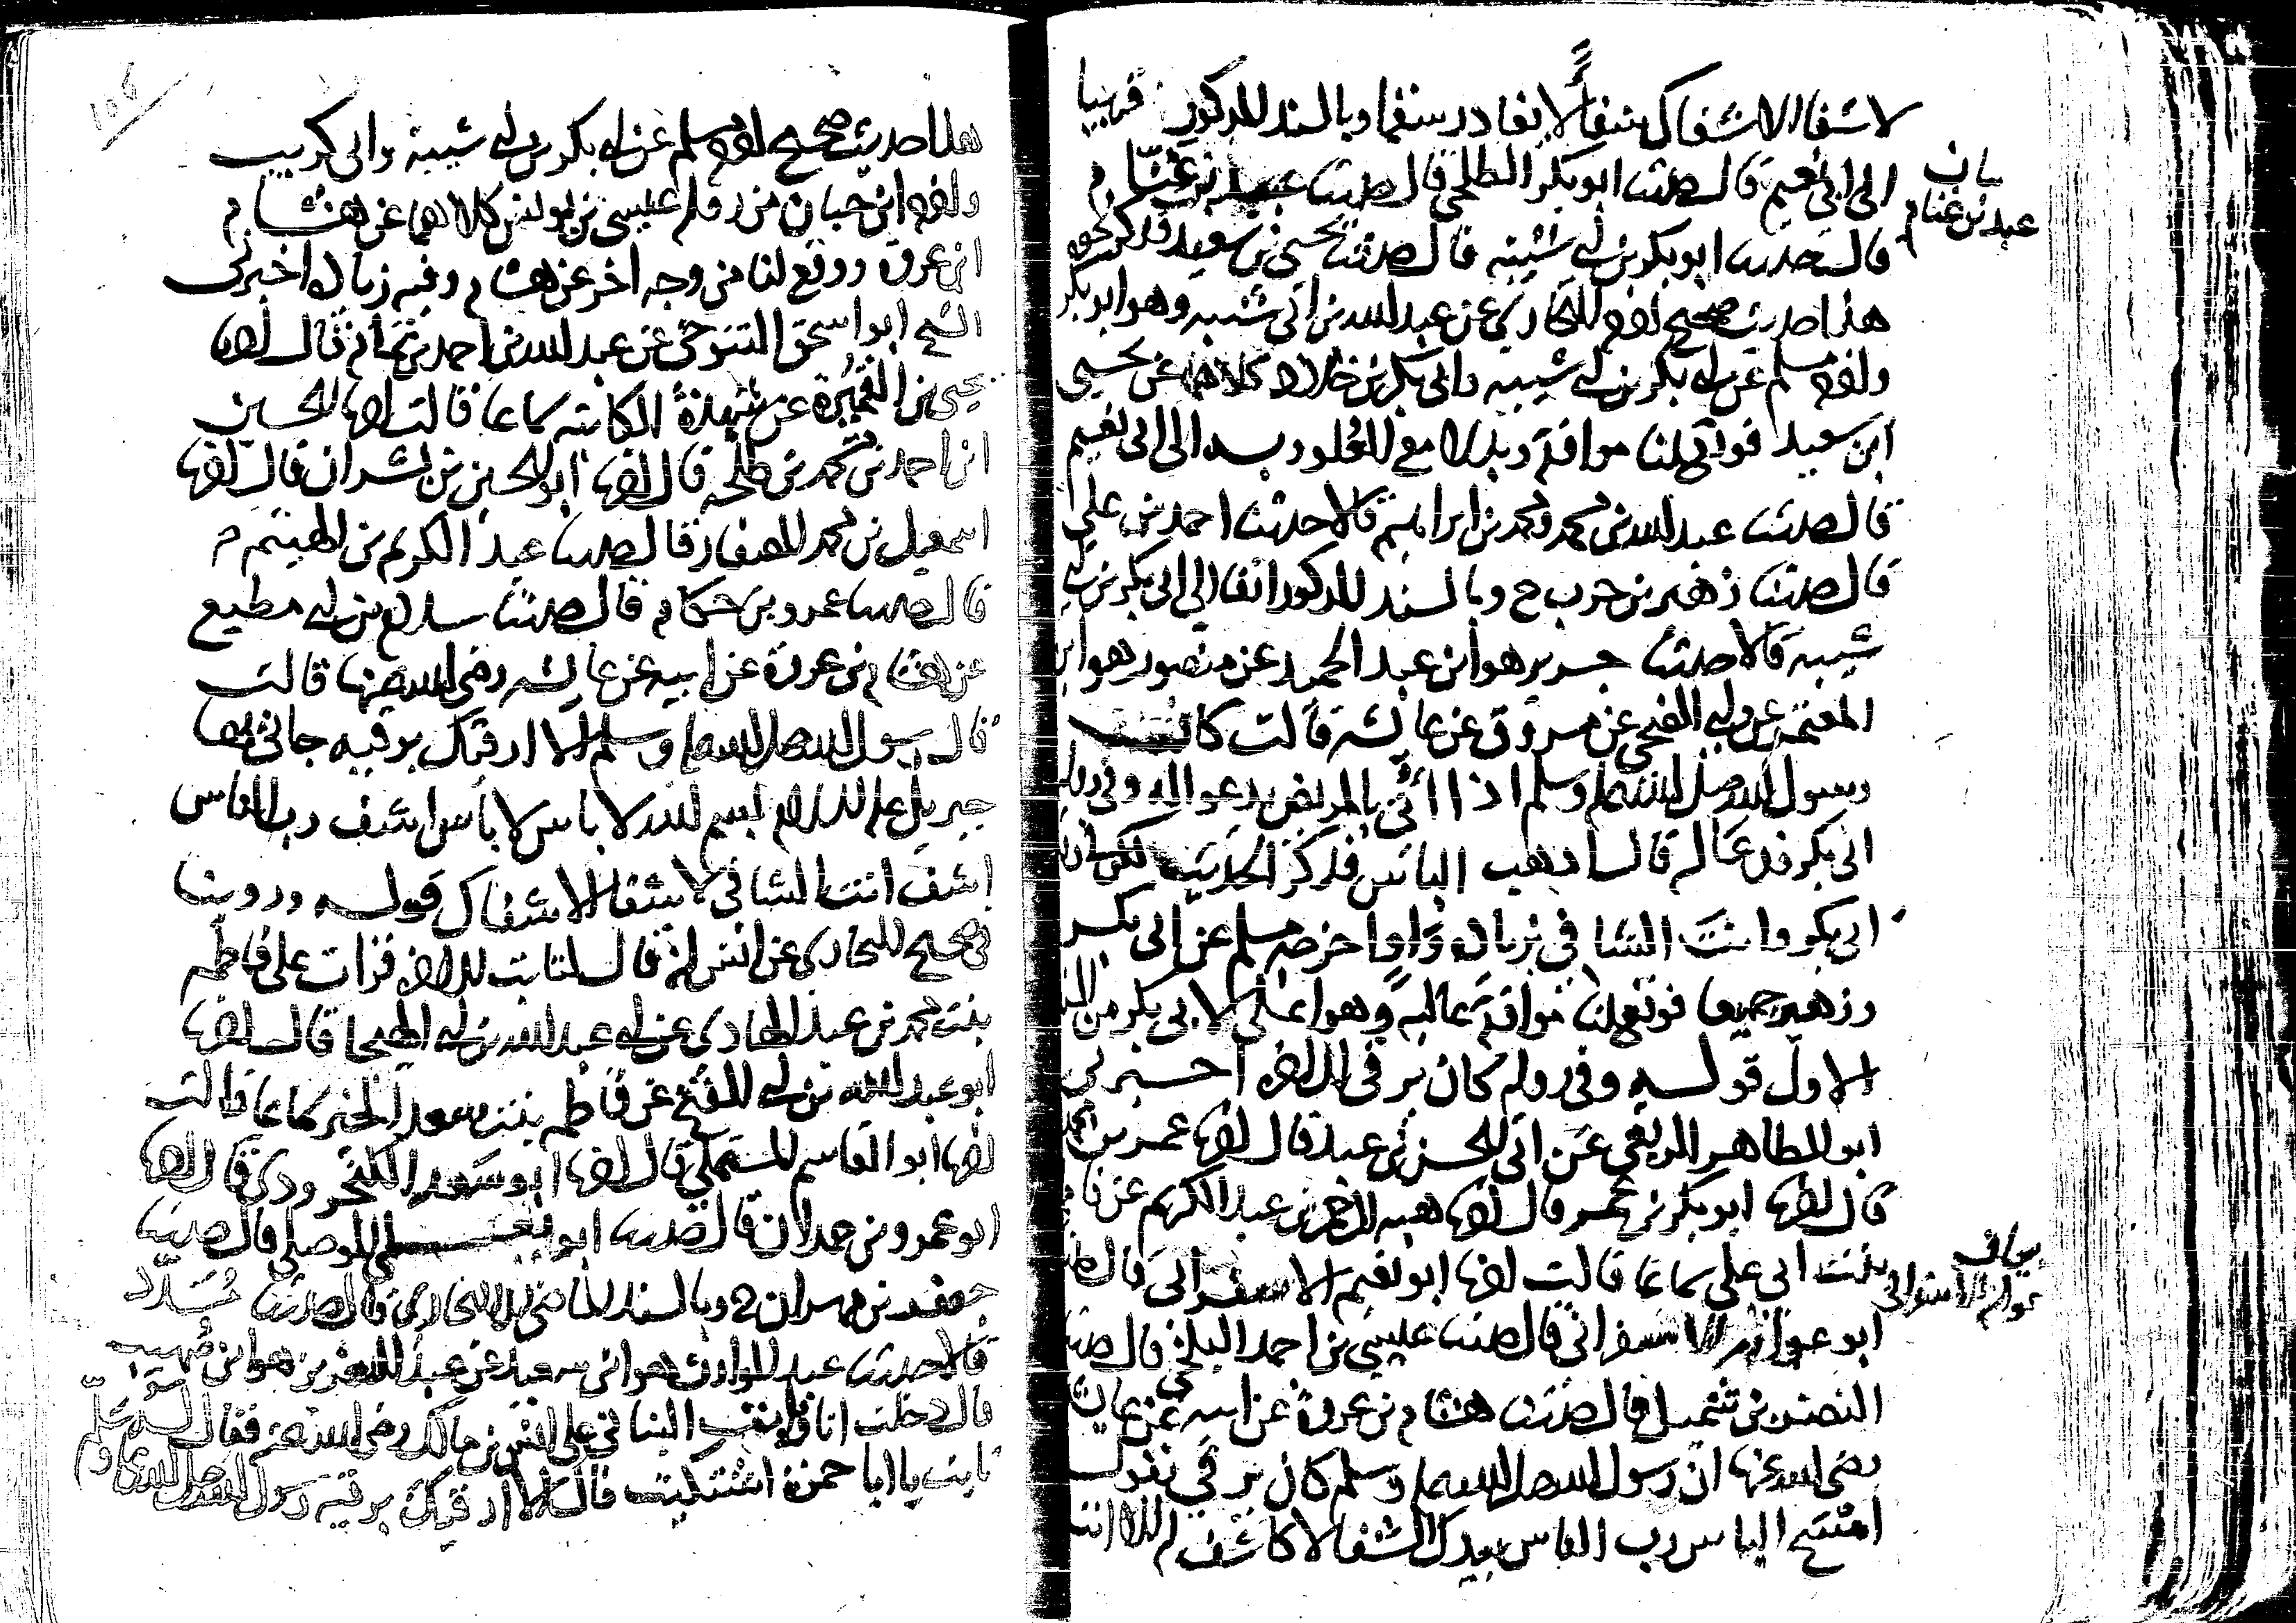 لا شفا الا شفاك شفاً لا يغادر سقما وبالسند المذكور قريبا
الى ابي نعيم قال حدثنا ابو بكر الطلحي قال حدثنا عبيد بن غنام
بيان
عبيد بن غنام
قال حدثنا ابو بكر بن ابي شيبه قال حدثنا يحيى بن سعيد فذكر نحوه
هذا حديث صحيح اخرجه البخاري عن عبد الله بن ابي شيبه وهو ابو بكر
واخرجه مسلم عن ابي بكر بن ابي شيبه وابي بكر بن خلاد كلاهما عن يحيى
ابن سعيد فوقع لنا موافقة وبدلا مع العلو وبه الى ابي نعيم
قال حدثنا عبد الله بن محمد ومحمد بن ابراهيم قالا حدثنا احمد بن علي
قال حدثنا زهير بن حرب ح وبالسند المذكور انفا الى ابي بكر بن ابي
شيبه قالا حدثنا جرير هو ابن عبد الحميد عن منصور هو ابن
المعتمر عن ابي الضحى عن مسروق عن عائشه قالت كان
رسول الله صلى الله عليه وسلم اذا اتي بالمريض يدعو له وفي روايه
ابي بكر فدعا له قال اذهب الباس فذكر الحديث لكن في روايه
ابي بكر وانت الشافي بزياده واو اخرجه مسلم عن ابي بكر
وزهير جميعا فوقع لنا موافقة عاليه وهو اعلى لابي بكر من
الاول قوله وفي روايه كان يرقي الى اخره اخبرني
ابو الطاهر الربعي عن ابي الحسن بن عبد قال اخبرنا عمر بن محمد
قال اخبرنا ابو بكر بن عمر قال اخبرنا هبه الرحمن بن عبد الكريم عن فاطمه
بنت ابي علي سماعا قالت اخبرنا ابو نعيم الاسفرايني قال حدثنا
ابو عوانه الاسفرايني قال حدثنا عيسى بن احمد البلخي قال حدثنا
النضر بن شميل قال حدثنا هشام بن عروة عن ابيه عن عائشه
رضي الله عنها ان رسول الله صلى الله عليه وسلم كان يرقي يقول
امسح الباس رب الناس بيدك الشفا لا كاشف له الا انت
هذا حديث صحيح اخرجه مسلم عن ابي بكر بن ابي شيبة وابي كريب
واخرجه ابن حبان من روايه عيسى بن يونس كلاهما عن هشام
ابن عروة ووقع لنا من وجه اخر عن هشام وفيه زياده اخبرني
الشيخ ابو اسحق التنوخي عن عبد الله بن احمد بن تمام قال اخبرنا
يحيى بن القميرة عن شهدة الكاتبه سماعا قالت اخبرنا الحسين
ابن احمد بن محمد بن طلحه قال اخبرنا ابو الحسين بن بشران قال اخبرنا
اسمعيل بن محمد الصفار قال حدثنا عبد الكريم بن الهيثم
قال حدثنا عمرو بن حكام قال حدثنا سلام بن ابي مطيع
عن هشام بن عروة عن ابيه عن عائشه رضي الله عنها قالت
قال رسول الله صلى الله عليه وسلم الا ارقيك برقيه جاني بها
جبريل عليه السلام بسم الله لا باس لا بأس اشف رب الناس
اشف انت الشافي لا شفا الا شفاك قوله وروينا
في صحيح البخاري عن انس انه قال لثابت الى اخره قرات على فاطمه
بنت محمد بن عبد الهادي عن ابي عبد الله بن ابي الهيجا قال اخبرنا
ابو عبد الله بن ابي الفتح عن فاطمه بنت سعد الخير سماعا قالت
اخبرنا ابو القاسم المستملي قال اخبرنا ابو سعد الكنجرودي قال اخبرنا
ابو عمرو بن حمدان قال حدثنا ابو يعلى الموصلي قال حدثنا
جعفر بن مهران ح وبالسند الماضي الى البخاري قال حدثنا مسدد
قالا حدثنا عبد الوارث هو ابن سعيد عن عبد العزيز هو ابن صهيب
قال دخلت انا وثابت البناني على انس بن مالك رضي الله عنه فقال له
ثابت يا ابا حمزة اشتكيت قال الا ارقيك برقية رسول الله صلى الله عليه وسلم